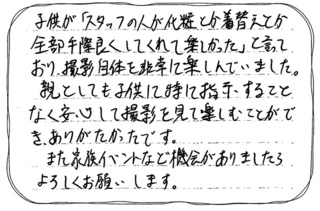 子供が「スタッフの人が化粧とか着替えとか
全部手際良くしてくれて楽しかった」と言って
おり、撮影自体を非常に楽しんでいました。
親としても子供に特に指示、すること
なく安心して撮影を見て楽しむことがで
き、ありがたかったです。
また家族イベントなど機会がありましたら
よろしくお願いします。